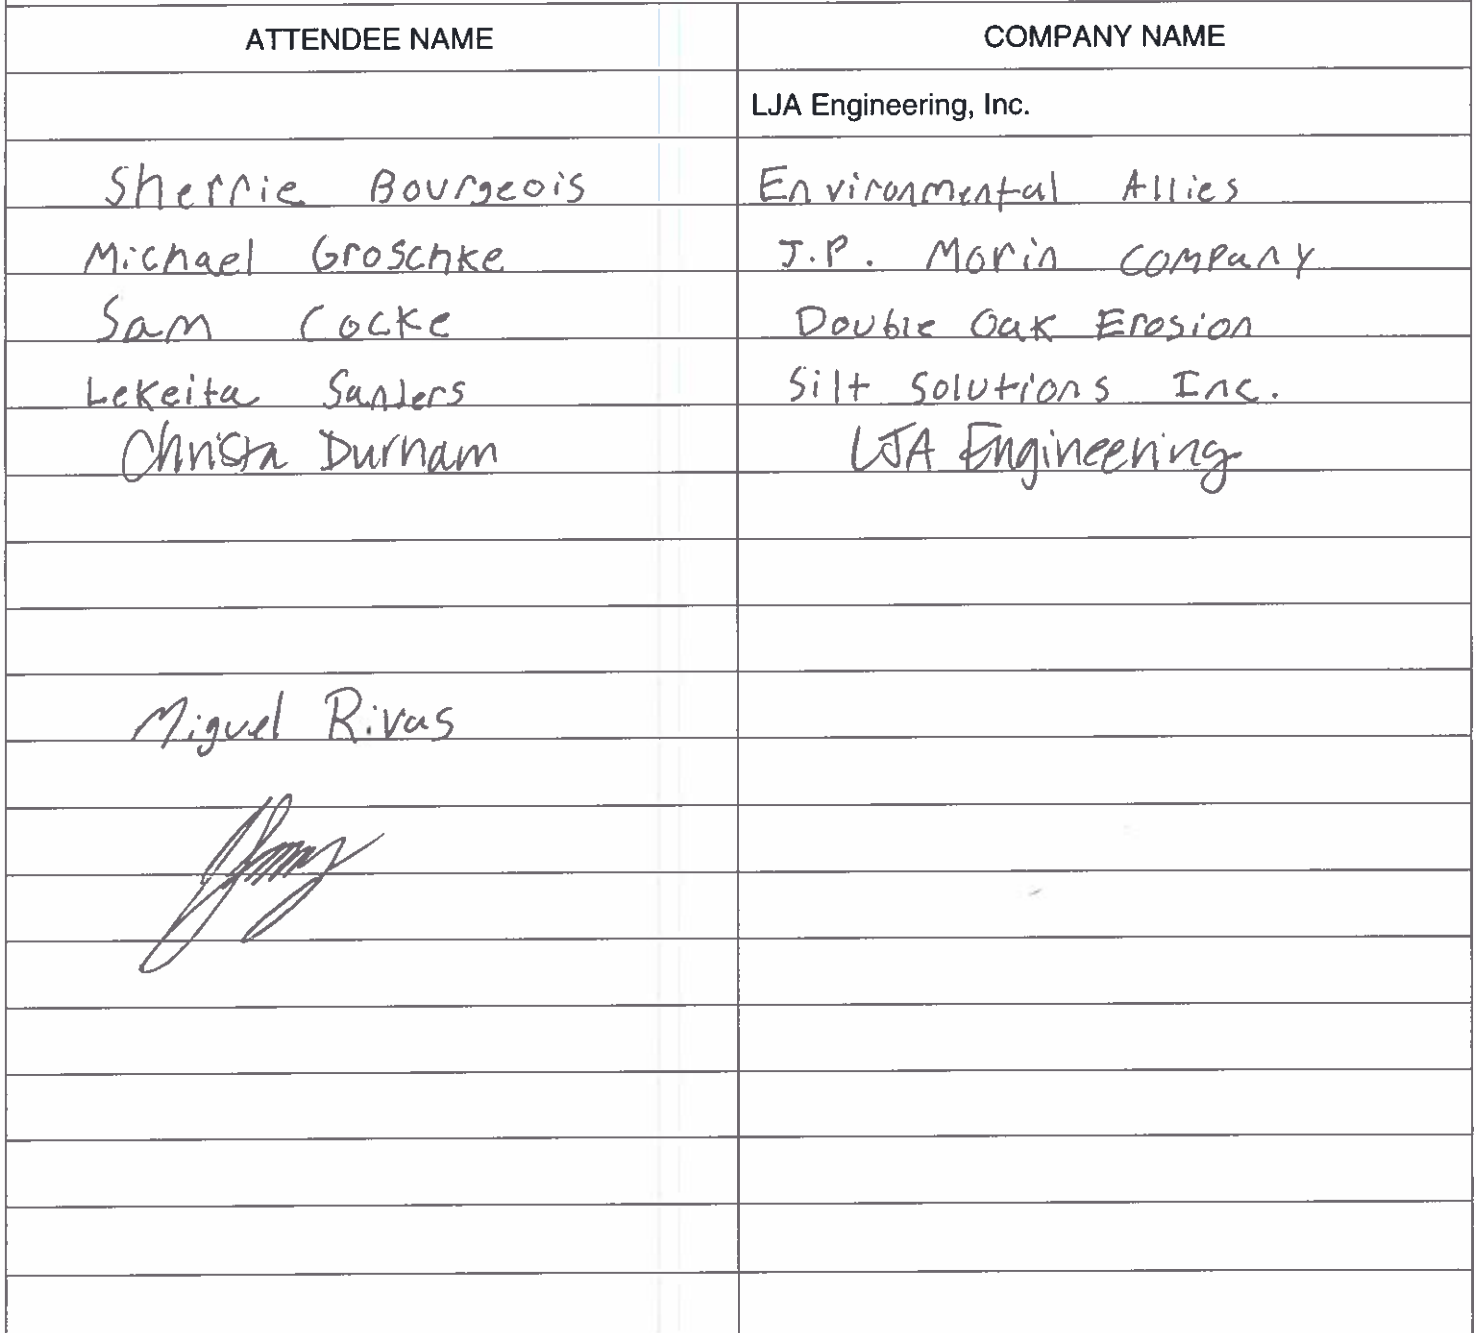 ATTENDEE NAME COMPANY NAME
LJA Engineering, Inc.
Sherrie Bourgeois Environmental Allies
Michael Groschke J.P. Morin Company
Sam Cocke Double Oak Erosion
Lekeita Sanders Silt Solutions Inc.
Christa Durham LJA Engineering
Miguel Rivas